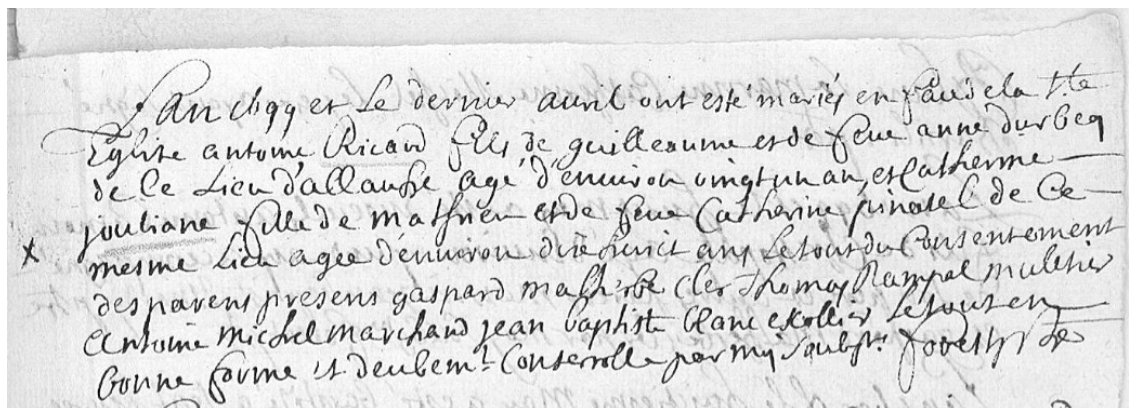 L'an 1699 et Le dernier avril ont esté mariés en face de la Ste
Eglise antoine Ricard fils de guilleaume et de feue anne durbec
de ce Lieu d'allauch agé d'environ vingt un an, et Catherine
jouliane fille de mathieu et de feue Catherine pinatel de ce
x mesme Lieu agée d'environ dixhuict ans Le tout du Consentement
des parens presens gaspard Cler Thomas Rampal muletier
antoine michel marchand jean baptiste blanc escollier Le tout en
bonne forme et deubemt Conterrolle par my soubsne